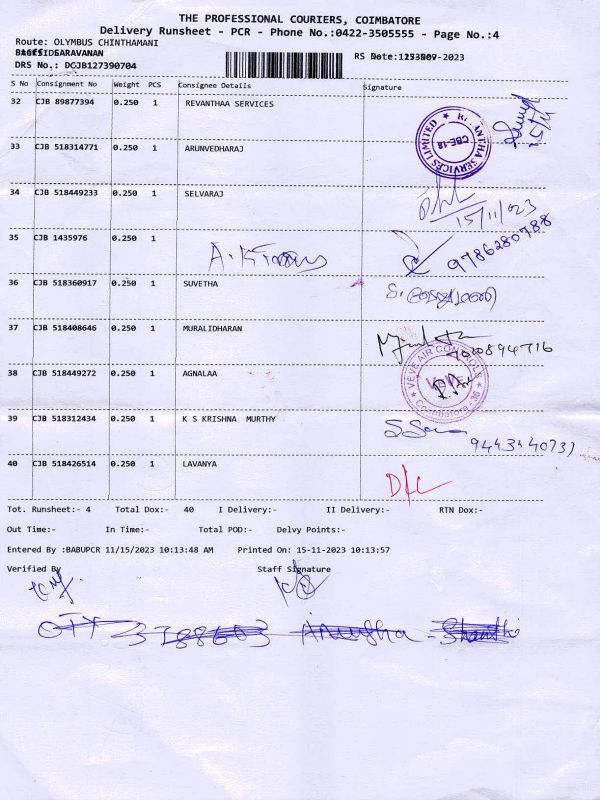 THE PROFESSIONAL COURIERS, COIMBATORE
Delivery Runsheet - PCR - Phone No.:0422-3505555 - Page No.:4
Route: OLYMBUS CHINTHAMANI
SARAVANAN
DRS No.: DCJB127390704
S No Consignment No Weight PCS Consignee Details Signature
32 CJB 89877394 0.250 1 REVANTHAA SERVICES
SERVICES LIMITED CBE-18
33 CJB 518314771 0.250 1 ARUNVEDHARAJ
34 CJB 518449233 0.250 1 SELVARAJ
15/11/023
35 CJB 1435976 0.250 1
9786280788
36 CJB 518360917 0.250 1 SUVETHA
37 CJB 518408646 0.250 1 MURALIDHARAN
38 CJB 518449272 0.250 1 AGNALAA
VEVE AIR CONTROLS
Coimbatore
39 CJB 518312434 0.250 1 K S KRISHNA MURTHY
40 CJB 518426514 0.250 1 LAVANYA
Tot. Runsheet:- 4 Total Dox:- 40 I Delivery:- II Delivery:- RTN Dox:-
Out Time:- In Time:- Total POD:- Delvy Points:-
Entered By :BABUPCR 11/15/2023 10:13:48 AM Printed On: 15-11-2023 10:13:57
Verified By Staff Signature